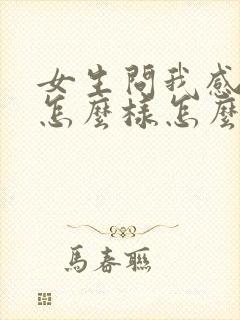 女生問我感
怎麼樣怎麼
馬春聯